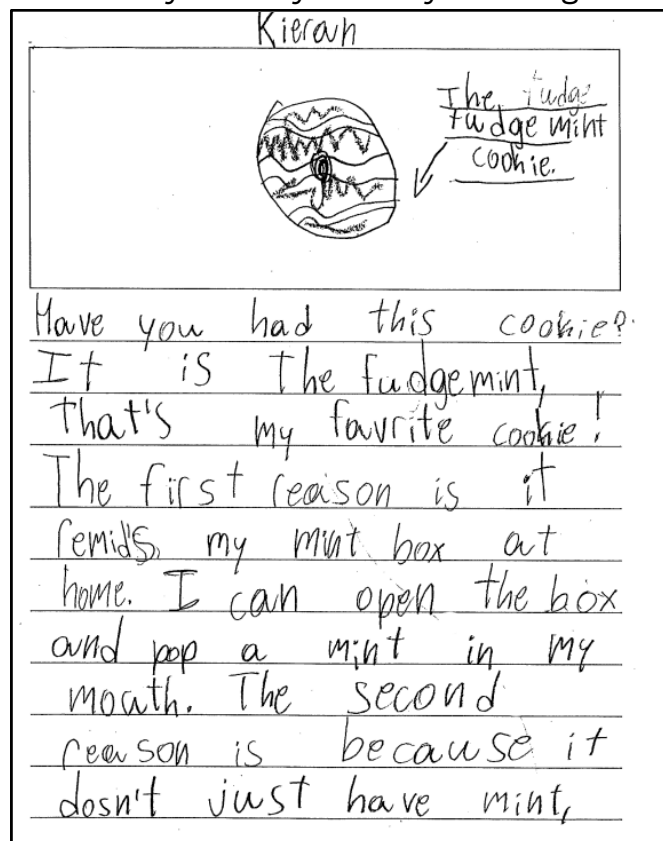 Kieran
The fudge
fudge mint
cookie.
Have you had this cookie?
It is The fudgemint,
that's my favrite cookie!
The first reason is it
remid's my mint box at
home. I can open the box
and pop a mint in my
mouth. The second
reason is because it
dosn't just have mint,